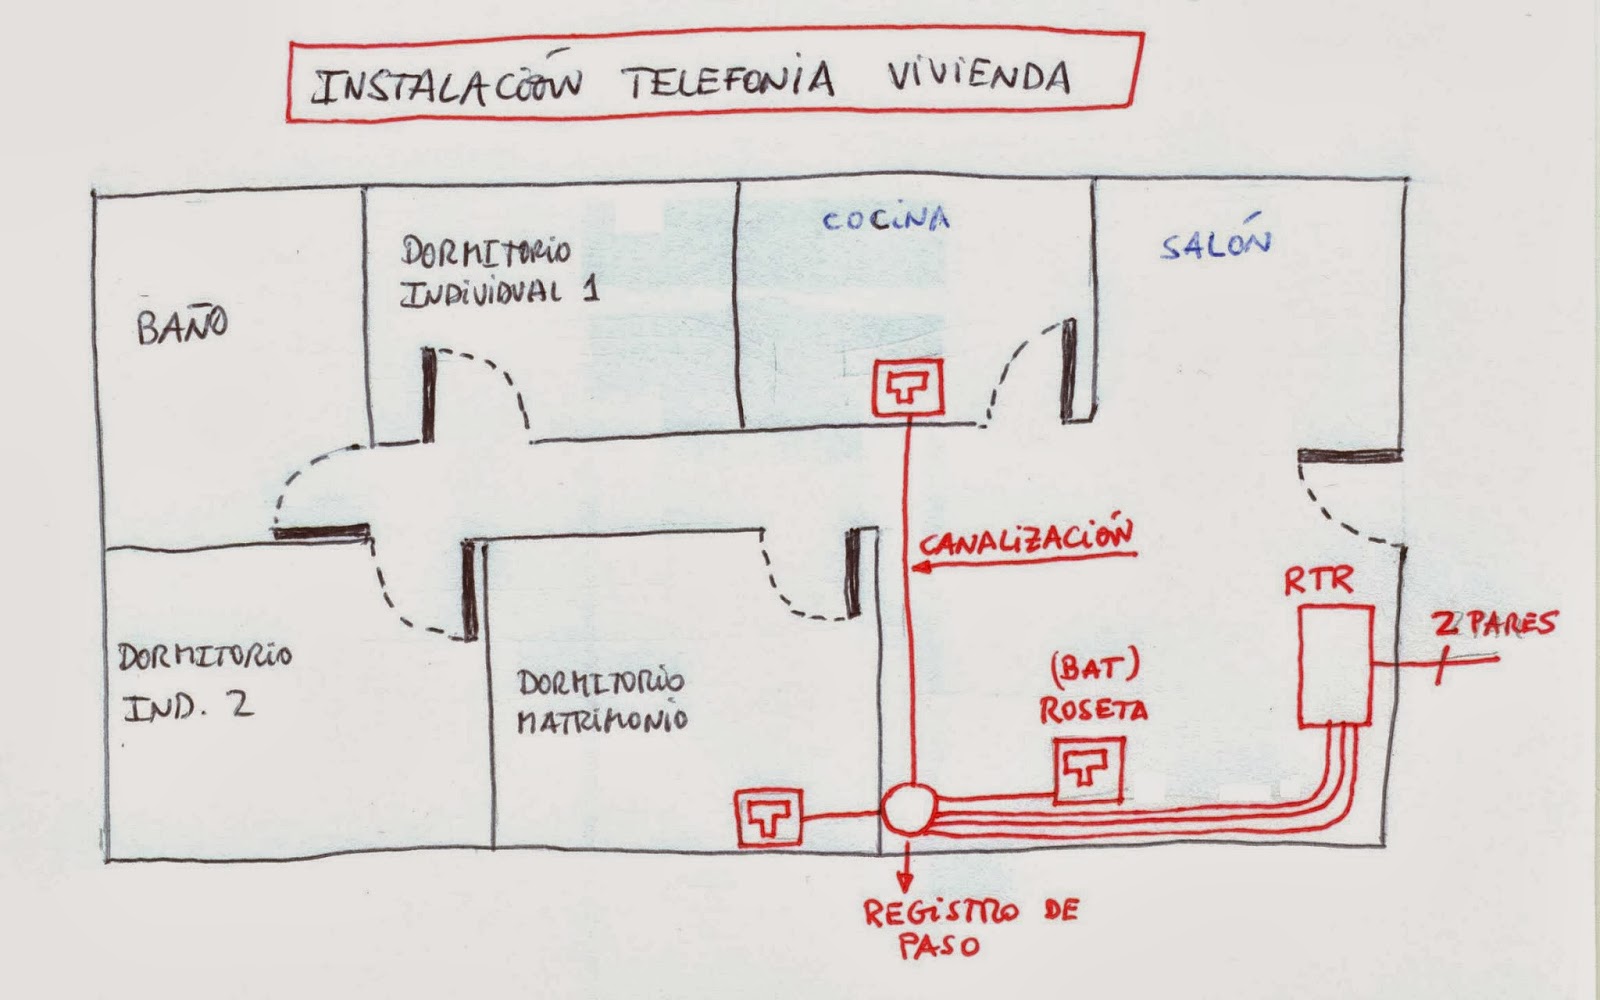 INSTALACIÓN TELEFONIA VIVIENDA
COCINA
SALÓN
DORMITORIO
INDIVIDUAL 1
BAÑO
CANALIZACIÓN
RTR
2 PARES
DORMITORIO
IND. 2
DORMITORIO
MATRIMONIO
(BAT)
ROSETA
REGISTRO DE
PASO